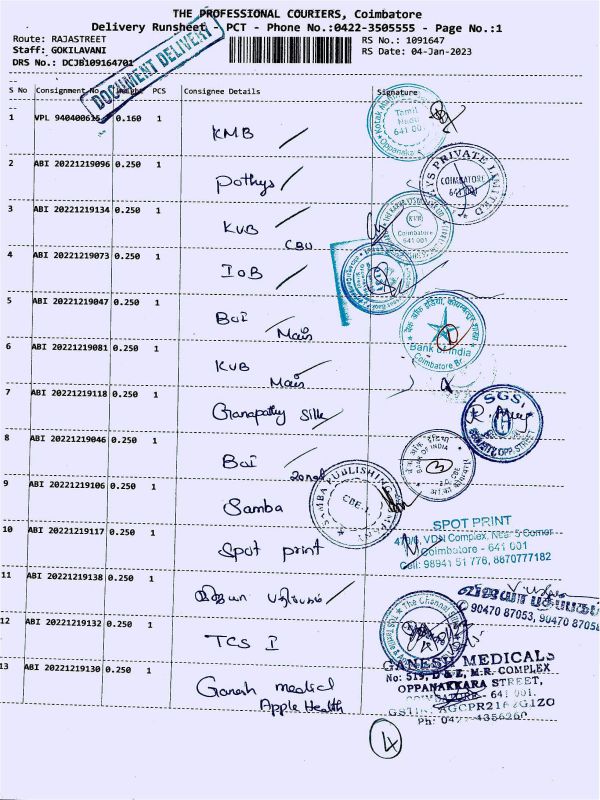 THE PROFESSIONAL COURIERS, Coimbatore
Delivery Runsheet - PCT - Phone No.:0422-3505555 - Page No.:1
Route: RAJASTREET
RS No.: 1091647
Staff: GOKILAVANI
RS Date: 04-Jan-2023
DRS No.: DCJB109164701
DOCUMENT DELIVERY
S No Consignment No. Weight PCS Consignee Details Signature
1 VPL 940400615 0.160 1 KMB
Kotak
Tamil
Nadu
641 001
Oppanakk
2 ABI 20221219096 0.250 1 Pothys
PRIVATE LIMITED
COIMBATORE
3 ABI 20221219134 0.250 1 KVB
CBU
KVB
Coimbatore
641 001
4 ABI 20221219073 0.250 1 IOB
5 ABI 20221219047 0.250 1 BOI
Main
बैंक ऑफ इंडिया,
Bank of India
Coimbatore Br.
6 ABI 20221219081 0.250 1 KVB
Main
7 ABI 20221219118 0.250 1 Ganapathy Silk
SGS,
OPP. STREET
8 ABI 20221219046 0.250 1 BOI
Zonal
BANK OF INDIA
9 ABI 20221219106 0.250 1 Samba
SAMBA PUBLISHING COMPANY
CBE-1
10 ABI 20221219117 0.250 1 Spot print
SPOT PRINT
VDN Complex, Near 5 Corner
Coimbatore - 641 001
Cell: 98941 51 776, 8870777182
11 ABI 20221219138 0.250 1 விஜயா பதிப்பகம்
விஜயா பதிப்பகம்
90470 87053, 90470 8705
12 ABI 20221219132 0.250 1 TCS I
The Chennai Silks
13 ABI 20221219130 0.250 1 Ganesh medical
Apple Health
GANESH MEDICALS
No: 519, D & E, M.R. COMPLEX
OPPANAKKARA STREET,
COIMBATORE - 641 001.
Ph: 0422 4356260
4